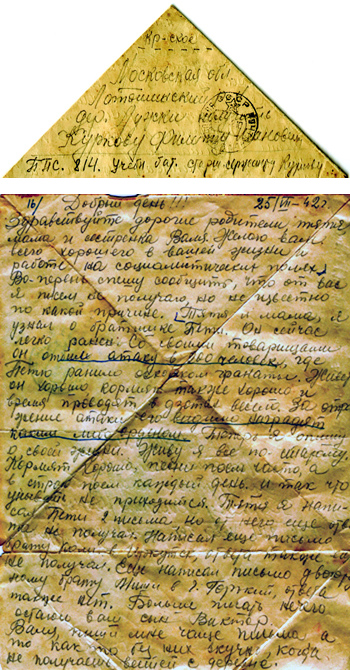 Кр-ское
Московская обл.
Лотошинский
дер.
Куркову Филиппу Ивановичу
ППС. 814. Учебн. бат. старш. сержанту Куркову
16/ Добрый день!!! 25/VII-42г.
Здравствуйте дорогие родители, тятя,
мама и сестренка Валя. Желаю вам
всего хорошего в вашей жизни и
работе на социалистических полях.
Во-первых спешу сообщить, что от вас
я писем не получаю, но не известно
по какой причине. Тятя и мама, я
узнал о братишке Пети. Он сейчас
легко ранен. Со своими товарищами
он отбил атаку в 180 человек, где
Петю ранило осколком гранаты. Живет
он хорошо, кормят также хорошо и
время проводят весело. За отра-
жение атаки его
Теперь я опишу
о своей жизни. Живу я все по старому.
Кормят хорошо, песни поем часто, а
строя поем каждый день. и так что
унывать не приходится. Тятя я напи-
сал Пети 2 письма, но от него еще отве-
та не получал. Написал еще письмо
брату также
не получал. Еще написал письмо двоюрод-
ному брату Мише в г. Горький, ответа
также нет. Больше писать нечего
остаюсь ваш сын Виктор.
Валя, пиши мне чаще письма, а
то как то без них скучно, когда
не получаешь вестей с деревни.